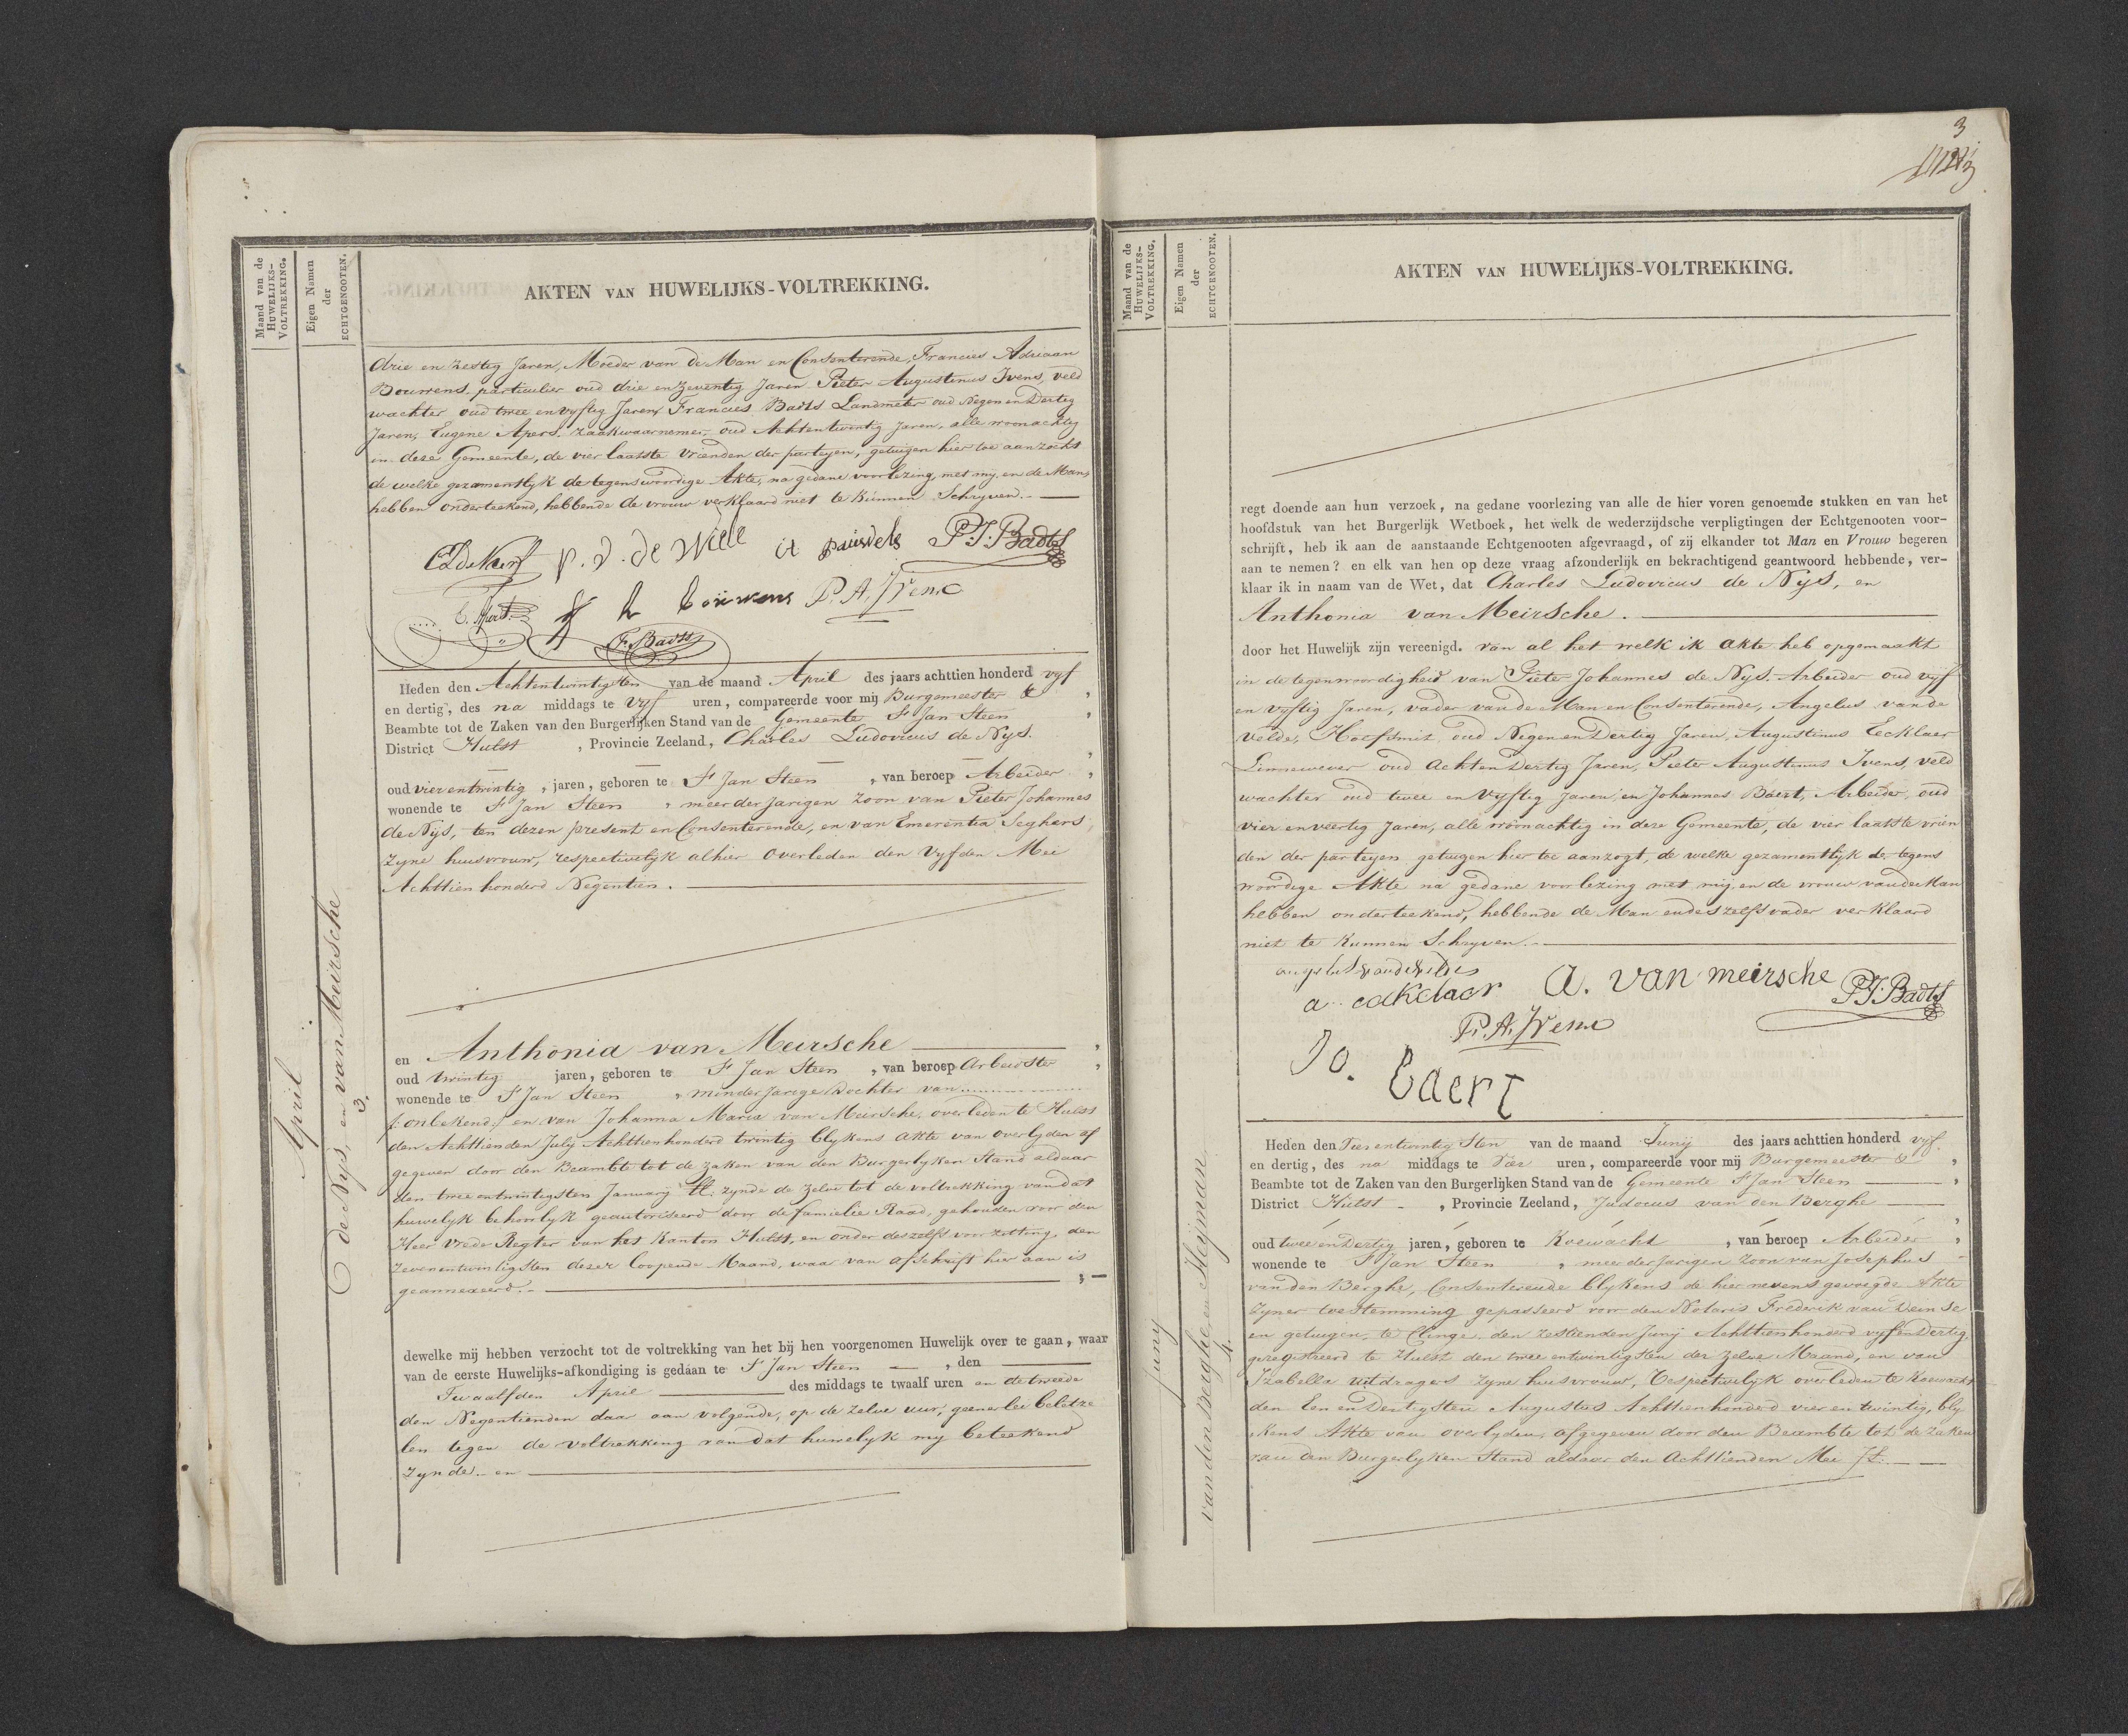 Maand van de
HUWELIJKS-
VOLTREKKING.
Eigen Namen
der
ECHTGENOOTEN.
AKTEN VAN HUWELIJKS-VOLTREKKING.
drie en zestig Jaren, Moeder van de Man en Consenterende, Francies Adriaan
Bouwens particulier oud drie en zeventig Jaren Pieter Augustinus Ivens, veld
wachter oud twee en vyftig Jaren Francies Badts Landmeter oud Negen en Dertig
Jaren, Eugene Apers, zaakwaarnemer, oud Achtentwintig Jaren, alle woonachtig
in deze Gemeente, de vier laatste vrienden der partyen, getuigen hier toe aanzocht
de welke gezamentlyk de tegenswoordige Akte, na gedane voorlezing, met my en de Man,
hebben onderteekend, hebbende de vrouw verklaard niet te kunnen Schryven.
P. J. de Wille P.J. Badts
P. A. Ivens
F. Badts
April
3.
de Nijs, en van Meirsche
Heden den Achtentwintigsten van de maand April des jaars achttien honderd vyf
en dertig, des na middags te vyf uren, compareerde voor mij Burgemeester &
Beambte tot de Zaken van den Burgerlijken Stand van de Gemeente St Jan Steen
District Hulst, Provincie Zeeland, Charles Ludovicus de Nys.
oud vier entwintig, jaren, geboren te St Jan Steen, van beroep Arbeider,
wonende te St Jan Steen, meerderjarigen zoon van Pieter Johannes
de Nijs, ten dezen present en Consenterende, en van Emerentia Seghers,
zyne huisvrouw, respectivelyk alhier overleden den Vyfden Mei
Achttien honderd Negentien.
en Anthonia van Meirsche,
oud twintig jaren, geboren te St Jan Steen, van beroep Arbeidster,
wonende te St Jan Steen, minderjarige Dochter van
/: onbekend :/ en van Johanna Maria van Meirsche, overleden te Hulst
den Achttienden July Achttienhonderd twintig blykens akte van overlyden af
gegeven door den Beambte tot de zaken van den Burgerlyken Stand aldaar
den twee entwintigsten January ll. zynde de zelve tot de voltrekking van dat
huwelyk behoorlyk geautoriseerd door de familie Raad, gehouden voor den
Heer Vrede Regter van het Kanton Hulst, en onder deszelfs voorzitting, den
zevenentwintigsten dezer loopende Maand, waar van afschrift hier aan is
geannexeerd.
dewelke mij hebben verzocht tot de voltrekking van het bij hen voorgenomen Huwelijk over te gaan, waar
van de eerste Huwelijks-afkondiging is gedaan te St Jan Steen, den
Twaalfden April des middags te twaalf uren en de tweede
den Negentienden daar aan volgende, op de zelve uur, geenerlei beletze
len tegen de voltrekking van dat huwelyk my beteekend
zynde en
3
Maand van de
HUWELIJKS-
VOLTREKKING.
Eigen Namen
der
ECHTGENOOTEN.
AKTEN VAN HUWELIJKS-VOLTREKKING.
regt doende aan hun verzoek, na gedane voorlezing van alle de hier voren genoemde stukken en van het
hoofdstuk van het Burgerlijk Wetboek, het welk de wederzijdsche verpligtingen der Echtgenooten voor-
schrijft, heb ik aan de aanstaande Echtgenooten afgevraagd, of zij elkander tot Man en Vrouw begeren
aan te nemen? en elk van hen op deze vraag afzonderlijk en bekrachtigend geantwoord hebbende, ver-
klaar ik in naam van de Wet, dat Charles Ludovicus de Nys, en
Anthonia van Meirsche.
door het Huwelijk zijn vereenigd. van al het welk ik akte heb opgemaakt
in de tegenwoordigheid van Pieter Johannes de Nys. Arbeider oud vyf
en vyftig Jaren, vader van de Man en Consenterende, Angelus vande
Velde, Hoefsmit oud Negen en Dertig Jaren, Augustinus Eecklaer
Linnewever oud Achten Dertig Jaren, Pieter Augustinus Ivens, veld
wachter oud twee en vyftig Jaren, en Johannes Baert, Arbeider, oud
vier en veertig Jaren, alle woonachtig in deze Gemeente, de vier laatste vrien
den der partyen getuigen hier toe aanzogt, de welke gezamentlyk de tegens
woordige Akte na gedane voorlezing met mij, en de vrouw van de Man
hebben onderteekend, hebbende de Man en deszelfs vader verklaard
niet te kunnen Schryven.
a. eeKclaer A. van meirsche P.J. Badts
P. A. Ivens
Jo. Baert
Juny
4.
van den Berghe, en Heyman
Heden den Vier entwintigsten van de maand Junij des jaars achttien honderd vyf
en dertig, des na middags te vier uren, compareerde voor mij Burgemeester &
Beambte tot de Zaken van den Burgerlijken Stand van de Gemeente St Jan Steen,
District Hulst, Provincie Zeeland, Judocus van den Berghe
oud twee en Dertig jaren, geboren te Koewacht, van beroep Arbeider,
wonende te St Jan Steen, meerderjarigen zoon van Josephus
van den Berghe, Consenterende blykens de hier nevens gevoegde Akte
zyner toestemming gepasseerd voor den Notaris Frederik van Deinse
en getuigen, te Clinge den zestienden Junij Achttienhonderd vyfendertig
geregistreerd te Hulst den twee entwintigsten der zelve Maand, en van
Izabella uitdragers zyne huisvrouw, respectivelyk overleden te Koewacht
den Een en Dertigsten Augustus Achttienhonderd vier en twintig, bly
kens Akte van overlyden, afgegeven door den Beambte tot de zaken
van den Burgerlyken Stand aldaar den Achttienden Mei jl.